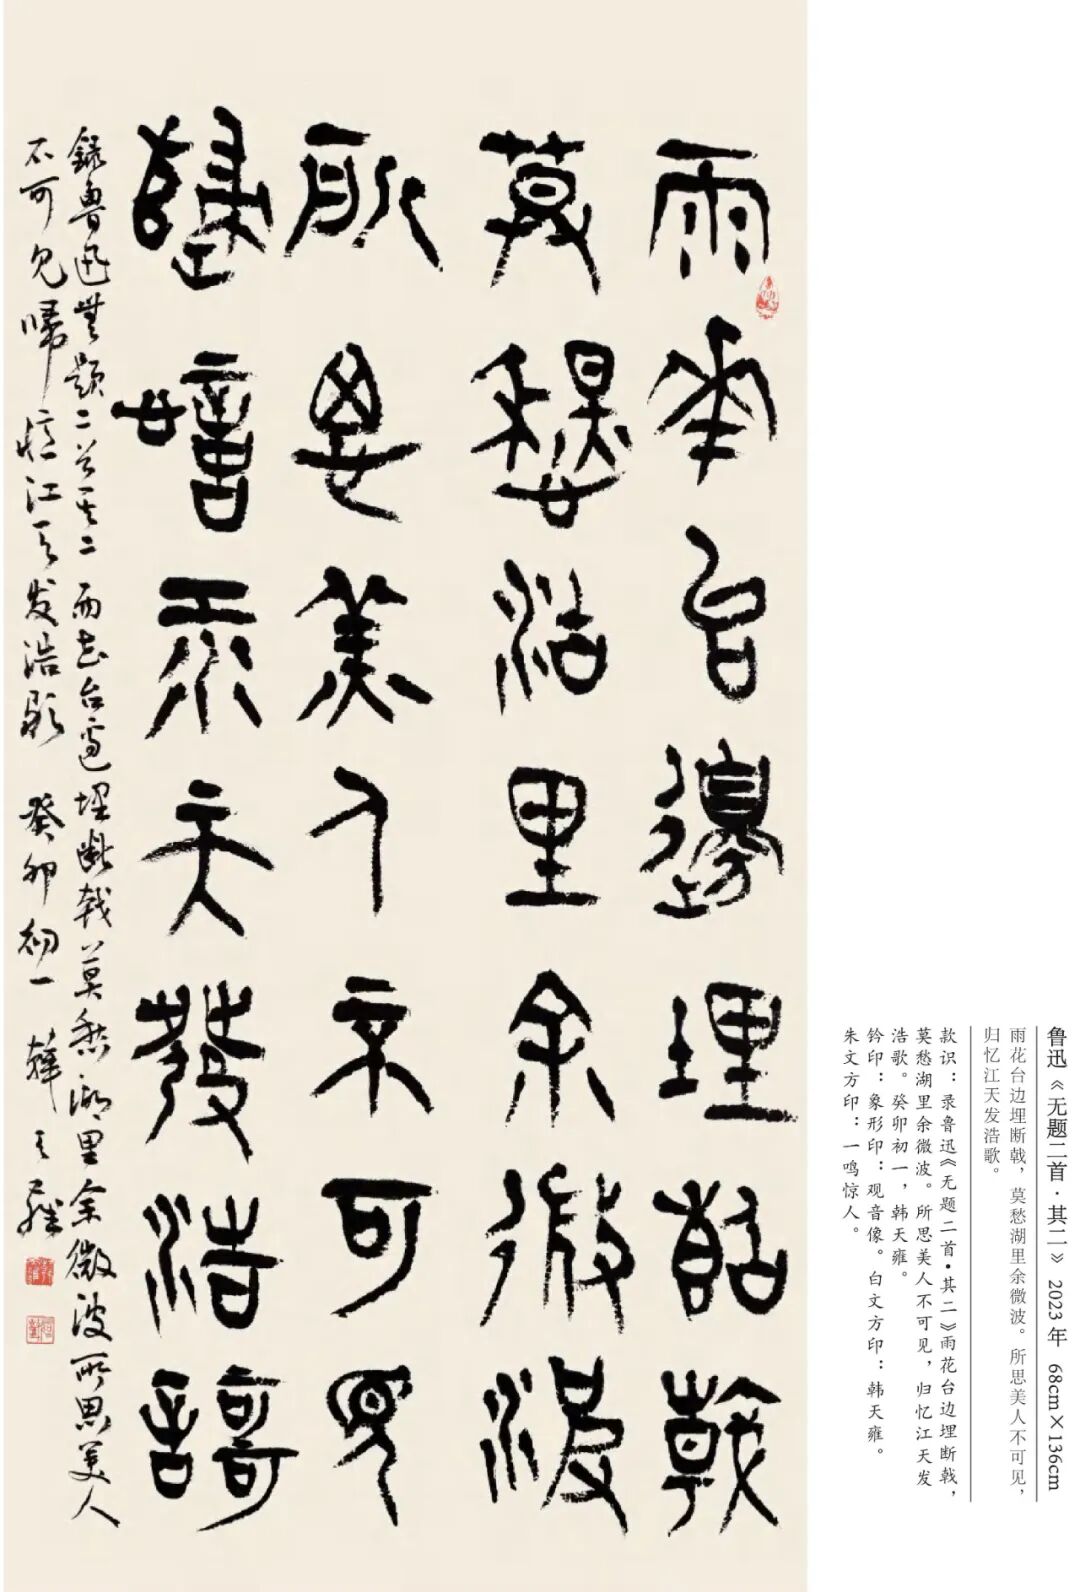 鲁迅《无题二首·其二》 2023年 68cm×136cm
雨花台边埋断戟，莫愁湖里余微波。所思美人不可见，
归忆江天发浩歌。
款识：录鲁迅《无题二首•其二》雨花台边埋断戟，
莫愁湖里余微波。所思美人不可见，归忆江天发
浩歌。癸卯初一，韩天雍。
钤印：象形印：观音像。白文方印：韩天雍。
朱文方印：一鸣惊人。
雨華台邊埋斷戟
莫愁湖里余微波
所思美人不可見
歸憶江天發浩謌
錄魯迅無題二首其二 雨花台邊埋斷戟莫愁湖里余微波所思美人
不可見歸憶江天发浩歌 癸卯初一 韓天雍